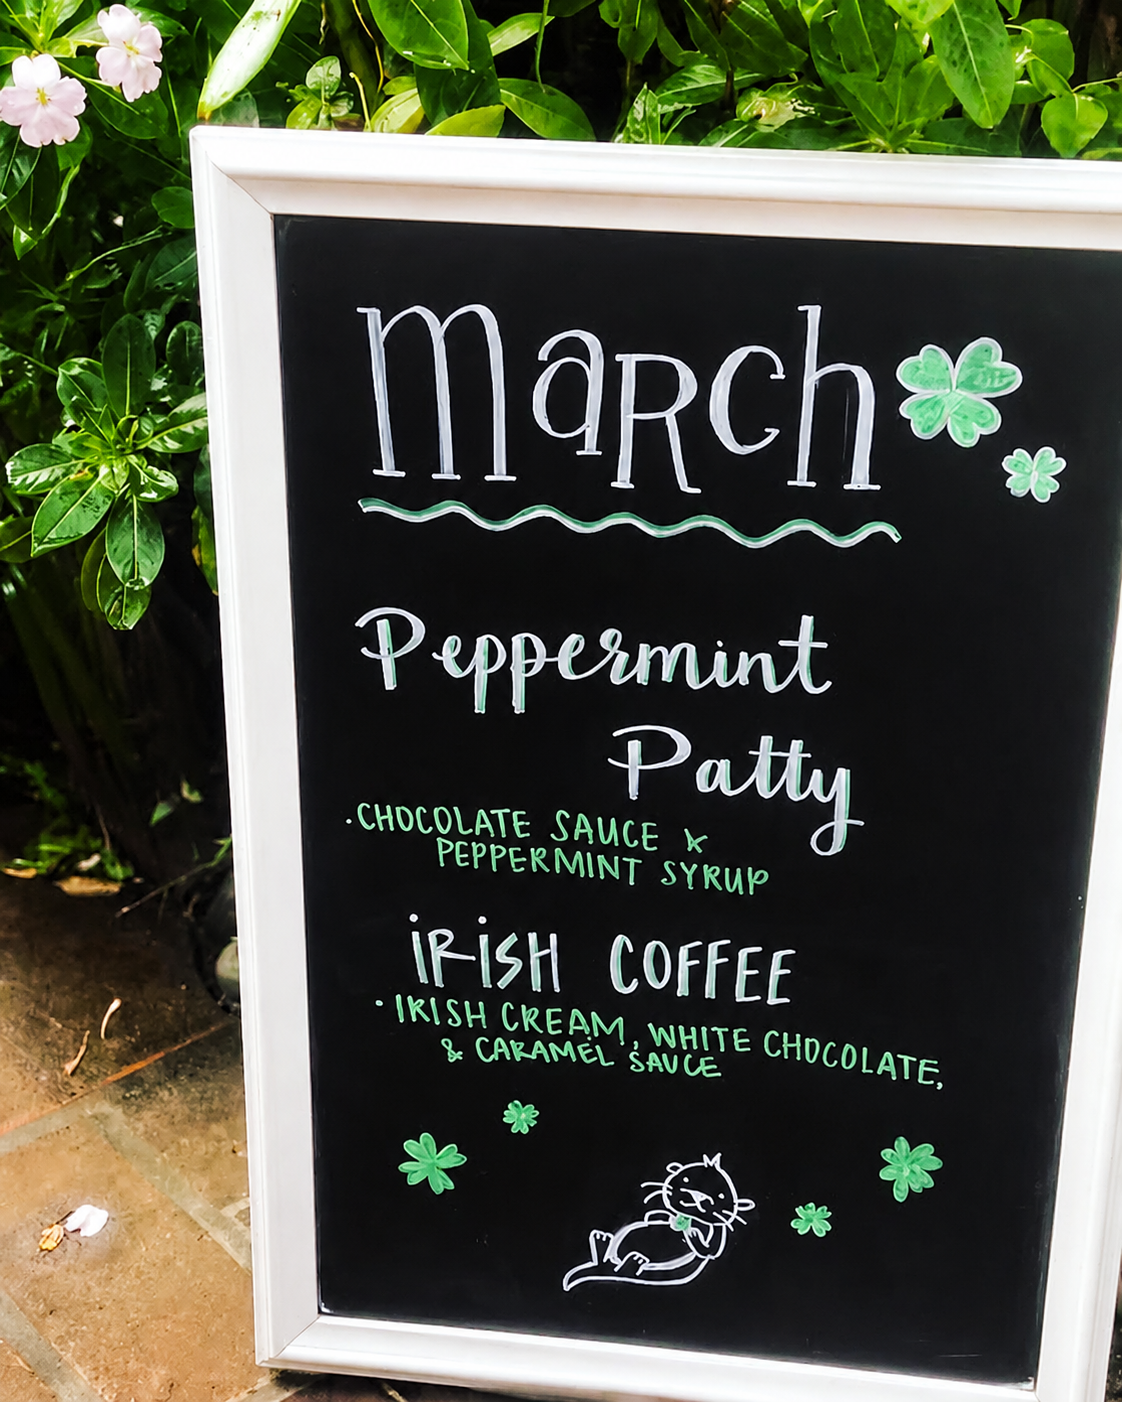 March
Peppermint
Patty
·CHOCOLATE SAUCE &
PEPPERMINT SYRUP
iRiSH COFFEE
·IRISH CREAM, WHITE CHOCOLATE,
& CARAMEL SAUCE